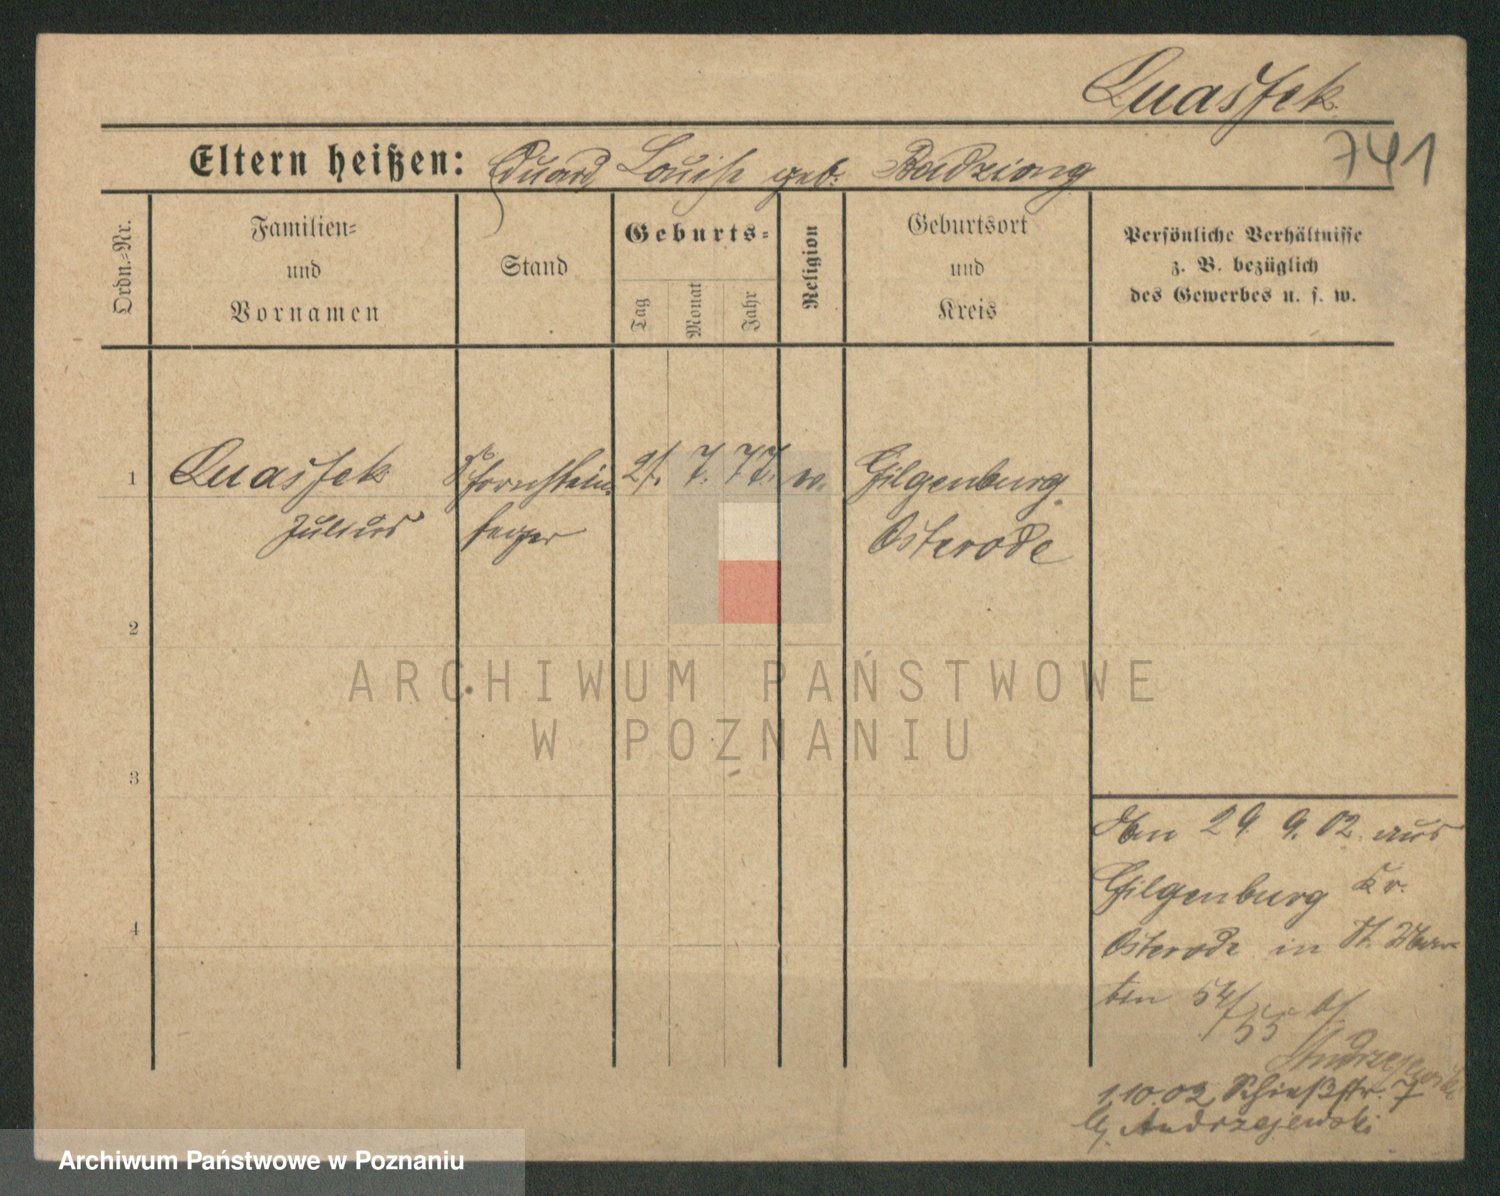 Quassek
741
Eltern heißen: Eduard, Louise geb. Badziong
Ordn.-Nr.
Familien-
und
Vornamen
Stand
Geburts-
Tag
Monat
Jahr
Religion
Geburtsort
und
Kreis
Persönliche Verhältnisse
z. B. bezüglich
des Gewerbes u. s. w.
1 Quassek Schornstein 21. 7. 77. Gilgenburg
Julius feger Osterode
2
3
4
ARCHIWUM PAŃSTWOWE
W POZNANIU
Den 29. 9. 02. aus
Gilgenburg Kr.
Osterode in St. Mar-
tin 54/55
Andrzejewski
1.10.02 Schießstr. 7
Andrzejewski
Archiwum Państwowe w Poznaniu